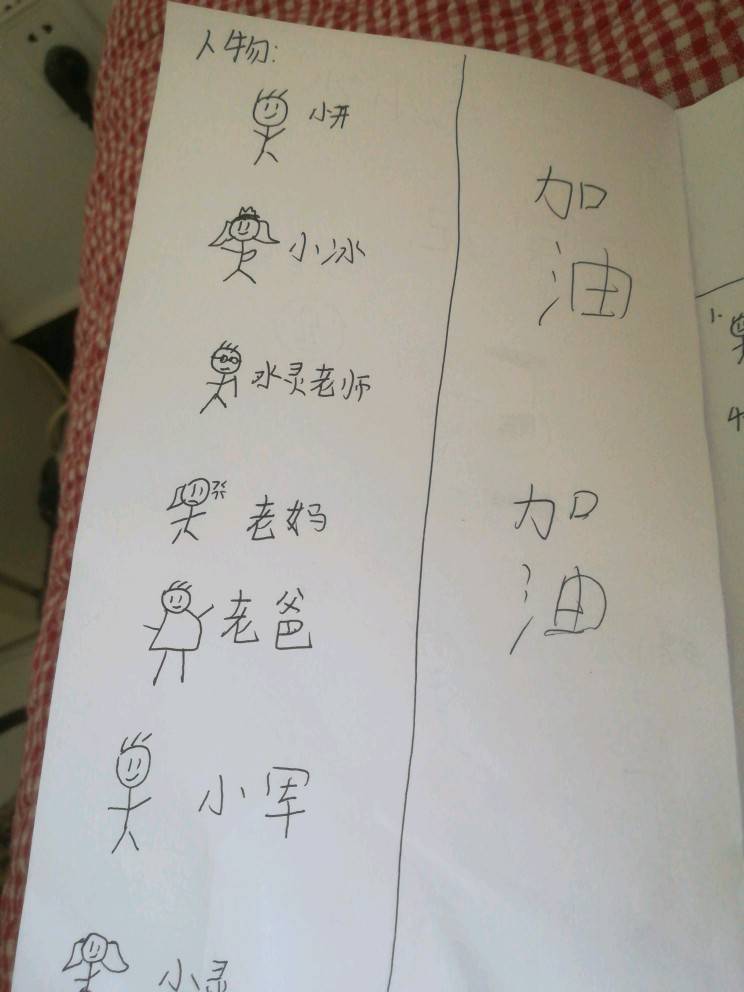 人物:
小开
小冰
水灵老师
老妈
老爸
小军
小灵
加
油
加
油